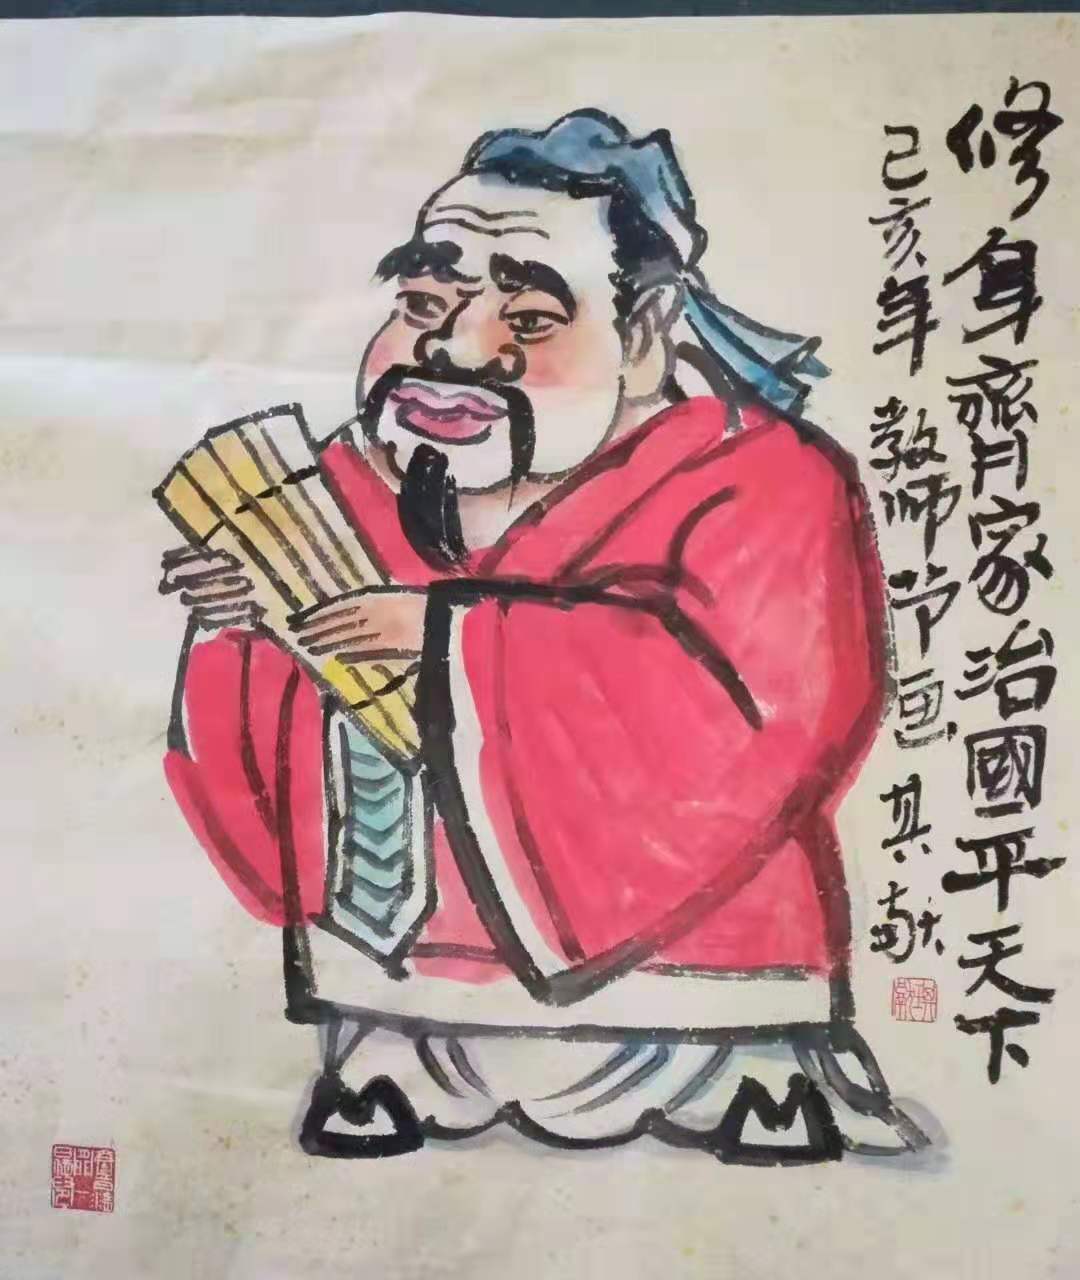 修身齊家治國平天下
己亥年教师节画 其献